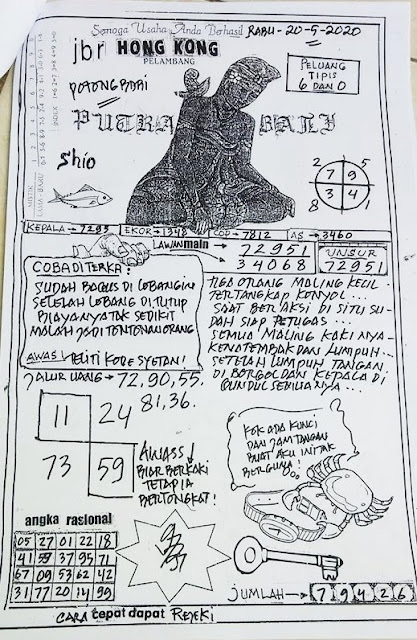 Semoga Usaha Anda Berhasil
RABU - 20-5-2020
jbr HONG KONG
PELAMBANG
PELUANG
TIPIS
6 DAN 0
POTONG BABI
PUTRA BALI
Shio
2 5
7 9
3 4
8 1
KEPALA → 7293
EKOR → 1348
COP → 7812
AS → 3460
LAWAN main → 72951
34068
UNSUR
72951
COBA DITERKA:
SUDAH BAGUS DI LOBANGIN
SETELAH LOBANG DITUTUP
BIAYANYA TAK SEDIKIT
MALAH JADI TONTONAN ORANG
AWAS! TELITI KODE SYETAN!
TIGA ORANG MALING KECIL
TERTANGKAP KONYOL...
SAAT BERAKSI DI SITU SU-
DAH SIAP PETUGAS...
SEMUA MALING KAKINYA-
KENA TEMBAK DAN LUMPUH...
SETELAH LUMPUH TANGAN
DI BORGOL DAN KEPALA DI
GUNDUL SEMUANYA...
JALUR UANG → 72, 90, 55.
81, 36.
11 24
73 59
AWASS
BIAR BERKAKI
TETAPI A
BERTONGKAT!
KOK ADA KUNCI
DAN JAM TANGAN
BUAT AKU INI TAK
BERGUNA!
angka rasional
05 27 01 22 18
41 59 37 95 71
67 09 53 62 42
31 77 20 14 99
JUMLAH → 7 9 4 2 6
CARA cepat dapat REJEKI